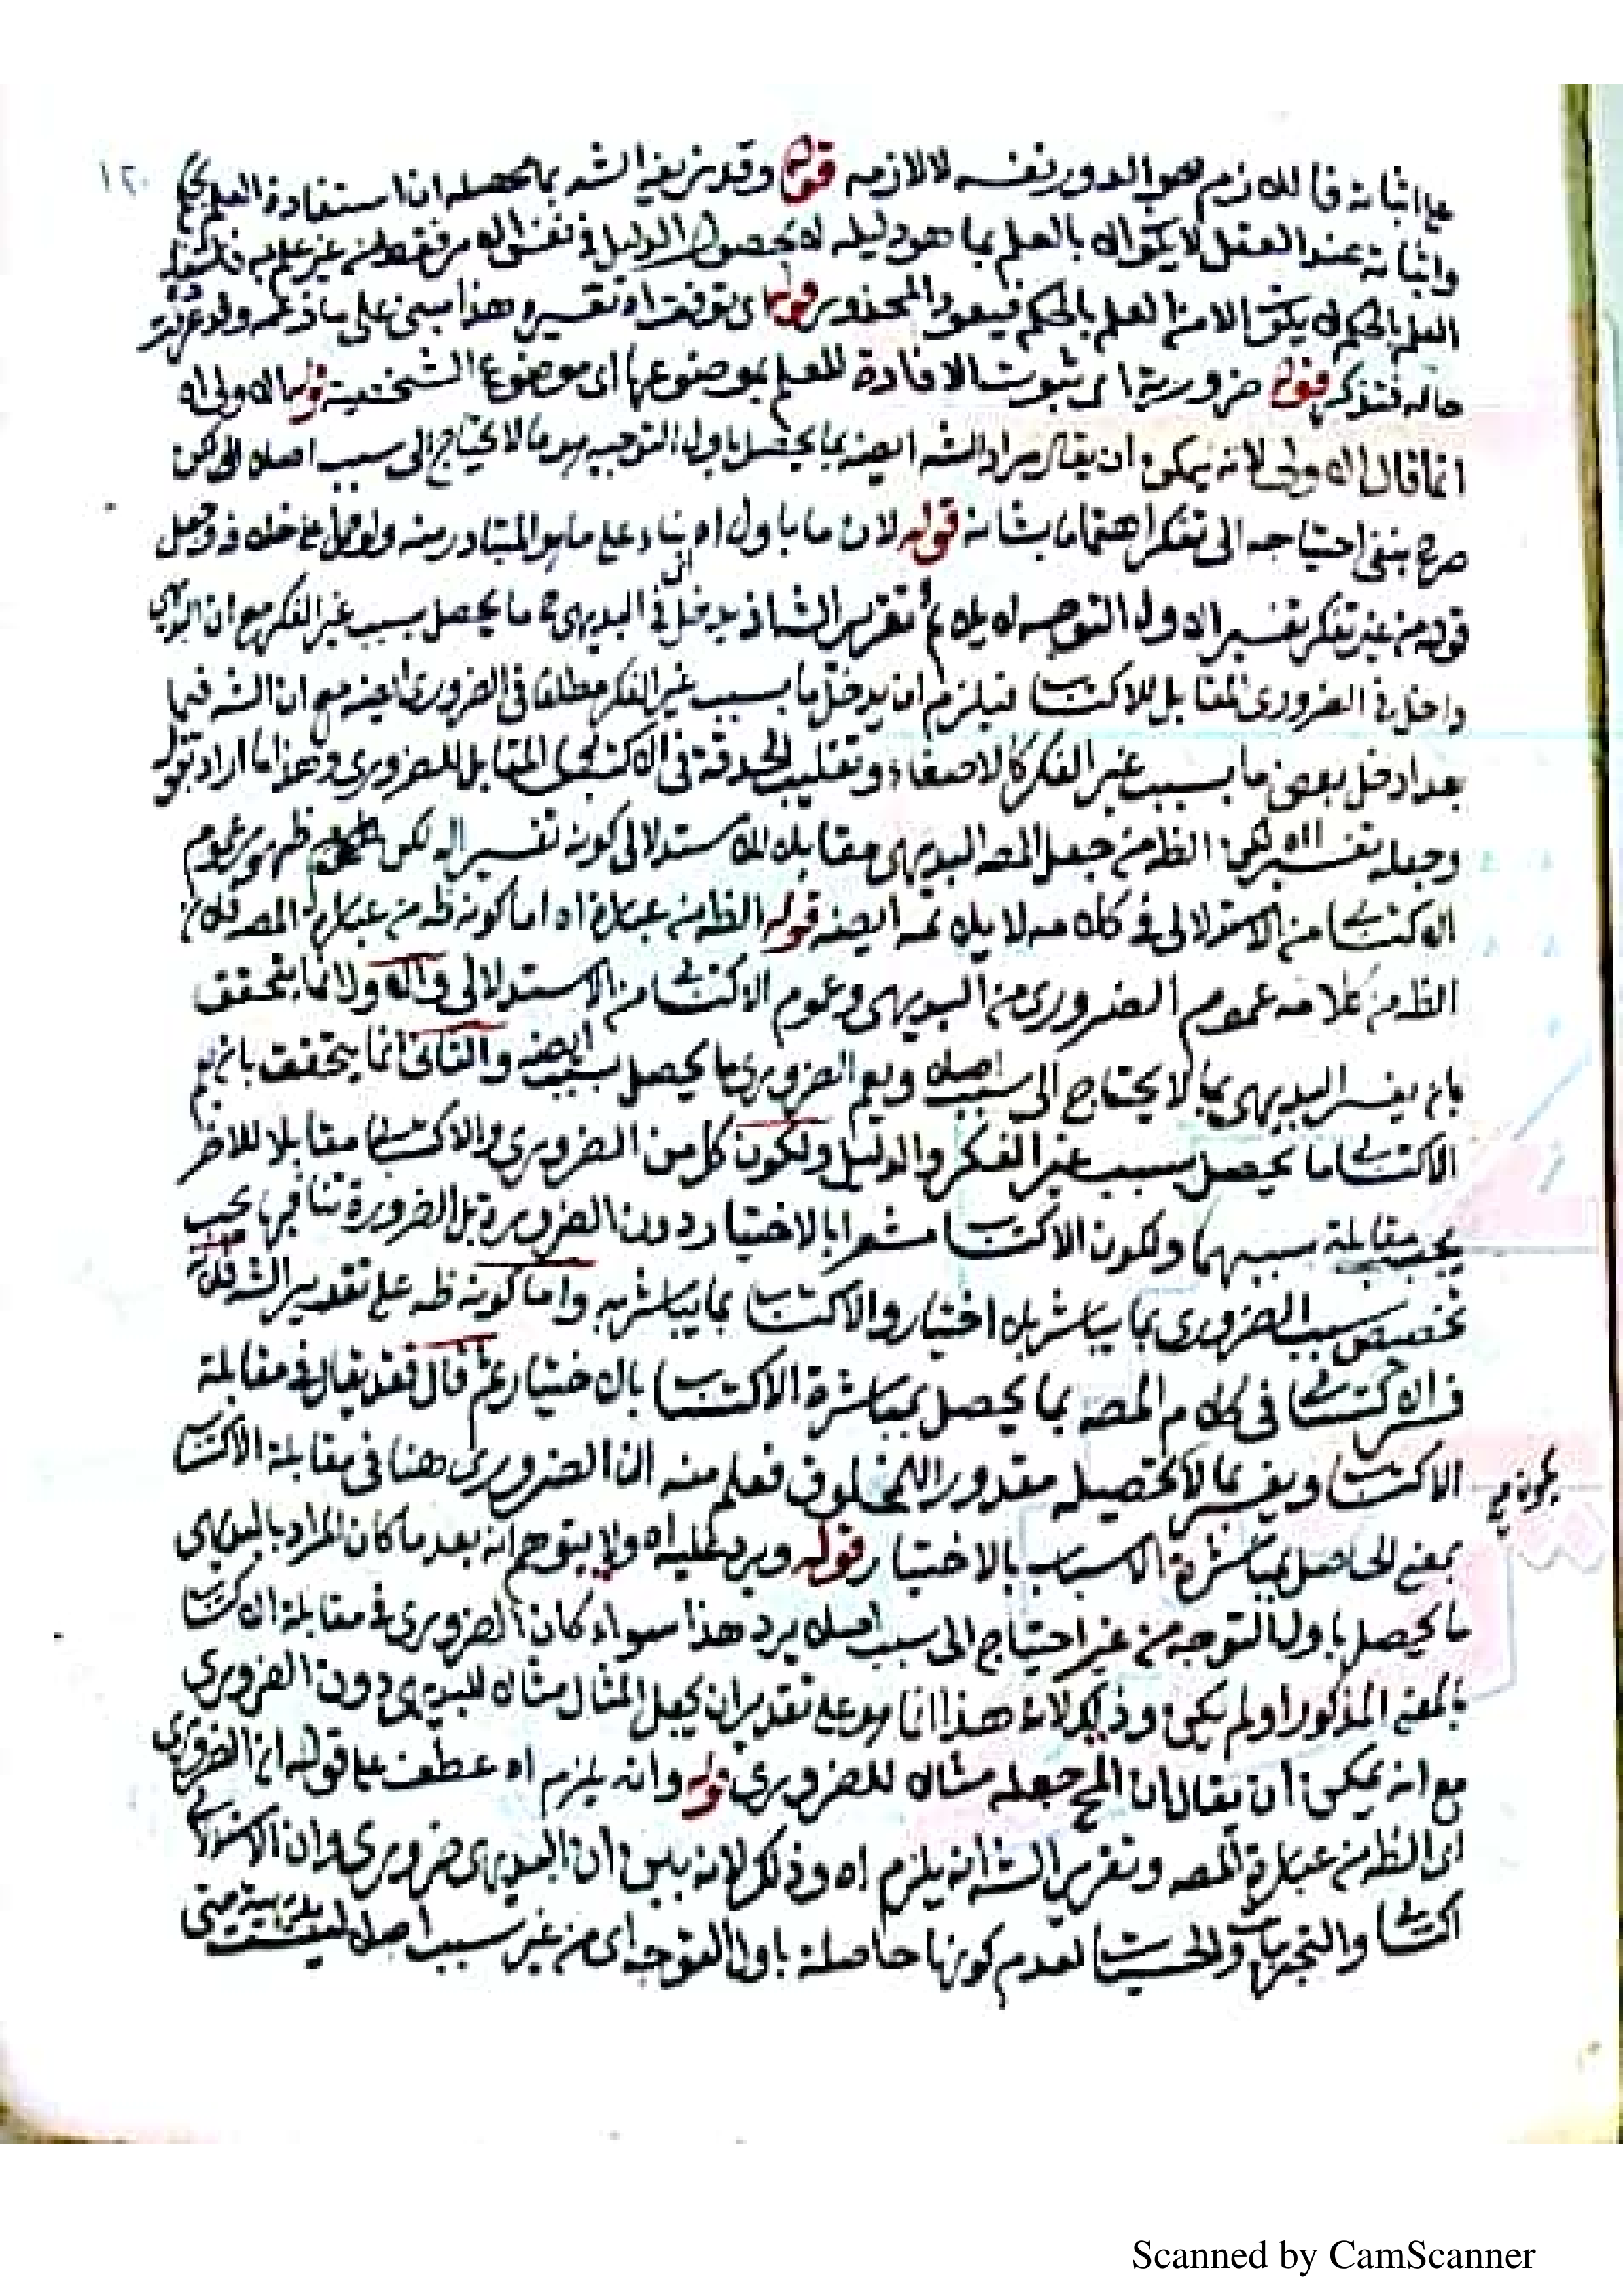 ١٢٠
على اثباته فاللازم هو الدور نفسه لا لازمه قوله وقد زيفه الشه بما محصله ان استفادة العلم بحكم
واثباته عند العقل لا يكون الا بالعلم بما هو دليله لا بحصول الدليل في نفس الامر فقط من غير علم به
العلم بالحكم لا يكون الا من العلم بالحكم فيعود المحذور قوله اى توقف اه تفسير وهذا مبنى على ما زعمه وقد عرفت
حاله فتذكر قوله ضرورية اى ثبوت الافادة للعلم بموضوعها اى موضوع الشخصية قوله الاولى اه
انما قال الاولى لانه يمكن ان يقال مراد الشه ايضه بما يحصل باول التوجيه هو ما لا يحتاج الى سبب اصلا لكن
صرح بنفى احتياجه الى تفكر اهتماما بشانه قوله لان ما باول اه بناء على ما هو المتبادر منه ولو حمل على خلافه وجعل
قوله من غير تفكر تفسير الاول التوجه لا يلائم تقرير الشه اذ يدخل في البديهى ما يحصل بسبب غير الفكر مع ان البديهى
داخل في الضرورى المقابل للاكتسابى فيلزم ان يدخل ما بسبب غير الفكر مطلقا فى الضرورى ايضه مع ان الشه فيما
بعد ادخل بعض ما بسبب غير الفكر كالاصغاء وتقليب الحدقة فى الاكتسابى المقابل للضرورى وهذا ما اراد بقوله
وجعله تفسير اه لكن الظه من جعل المصه البديهى مقابلا للاستدلالى كونه تفسير اله لكن ظهور عموم
الاكتسابى من الاستدلالى في كلامه لا يلائمه ايضه قوله الظه من عبارة اه اما كونه ظه من عبارة المصه فلان
الظه من كلامه عموم الضرورى من البديهى وعموم الاكتسابى من الاستدلالى والاول انما يتحقق
بان يفسر البديهى بما لا يحتاج الى سبب اصلا ويعم الضرورى ما يحصل بسبب ايضه والثانى انما يتحقق بان يعم
الاكتسابى ما يحصل بسبب غير الفكر والدليل ولكون كل من الضرورى والاكتسابى مقابلا للاخر
يجب مقابلة سببهما ولكون الاكتساب مشعرا بالاختيار دون الضرورة بل الضرورة تنافيها يجب
تخصيص سبب الضرورى بما يباشر بلا اختيار والاكتساب بما يباشر به واما كونه ظه على تقدير الشه فلانه
فسر الاكتسابى فى كلام المصه بما يحصل بمباشرة الاكتساب بالاختيار ثم قال فقد يقال في مقابلة
الاكتسابى ويفسر بما لا تحصيله مقدورا للمخلوق فعلم منه ان الضرورى هنا فى مقابلة الاكتسابى
يكون صح
بمعنى الحاصل بمباشرة الاسباب بالاختيار قوله ويرد عليه اه ولا يتوهم انه بعد ما كان المراد بالبديهى
ما يحصل باول التوجه من غير احتياج الى سبب اصلا يرد هذا سواء كان الضرورى في مقابلة الاكتسابى
بالمعنى المذكور او لم يكن وذلك لان هذا انما هو على تقدير ان يجعل المثال مثالا للبديهى دون الضرورى
مع انه يمكن ان يقال ان المح جعله مثالا للضرورى قوله وانه يلزم اه عطف على قوله ان الضرورى
اى الظه من عبارة المصه وتقرير الشه انه يلزم اه وذلك لانه بين ان البديهى ضرورى وان الاستدلالى
اكتسابى والتجربيات والحسيات لعدم كونها حاصلة باول التوجه اى من غير سبب اصلا ليست بديهية حتى
Scanned by CamScanner